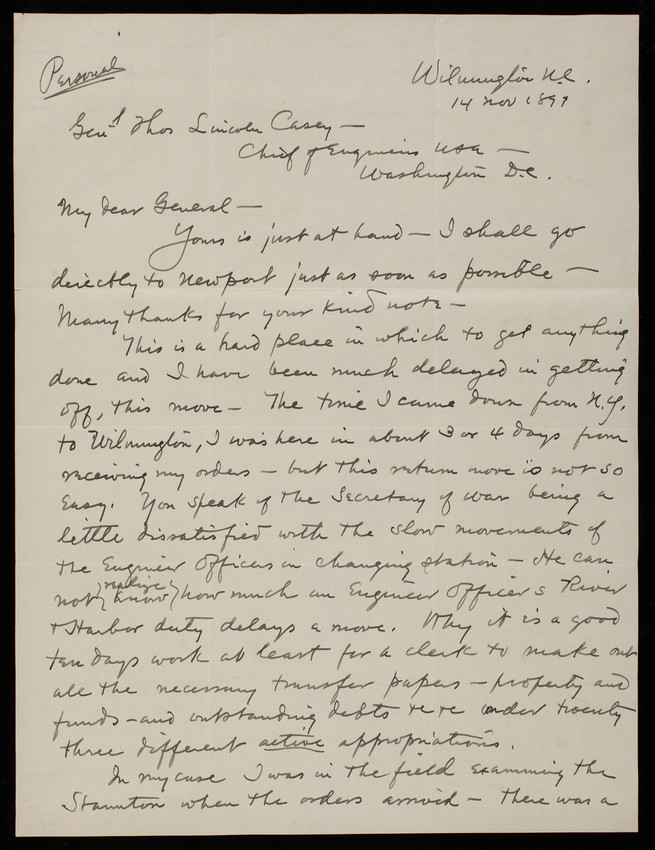 Personal
Wilmington N.C.
14 Nov 1891
Genl Thos Lincoln Casey —
Chief of Engineers USA —
Washington D.C.
My dear General —
Yours is just at hand — I shall go
directly to Newport just as soon as possible —
Many thanks for your kind note —
This is a hard place in which to get anything
done and I have been much delayed in getting
off, this move — The time I came down from N.Y.
to Wilmington, I was here in about 3 or 4 days from
receiving my orders — but this return move is not so
easy. You speak of the Secretary of War being a
little dissatisfied with the slow movements of
the Engineer Officers in changing station — He can
realize
not (know) how much an Engineer Officer's River
& Harbor duty delays a move. Why it is a good
ten days work at least for a clerk to make out
all the necessary transfer papers — property and
funds — and outstanding debts &c &c under twenty
three different active appropriations.
In my case I was in the field examining the
Staunton when the orders arrived — there was a